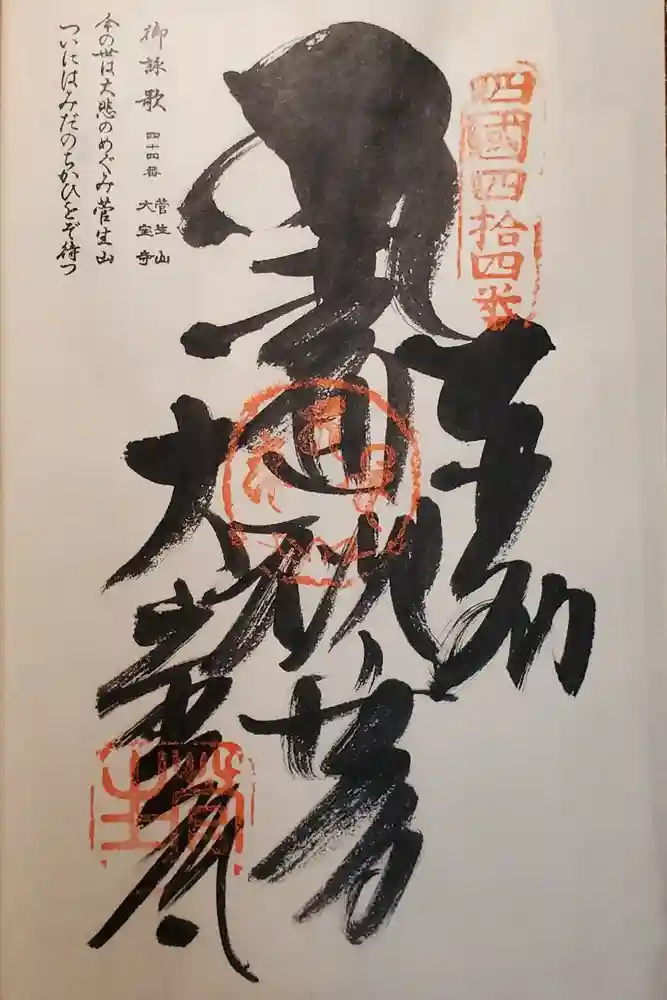 四國四拾四番
奉納
大寶寺
菅生
御詠歌 四十四番 菅生山
大宝寺
今の世は大悲のめぐみ菅生山
ついにはみだのちかひをぞ待つ